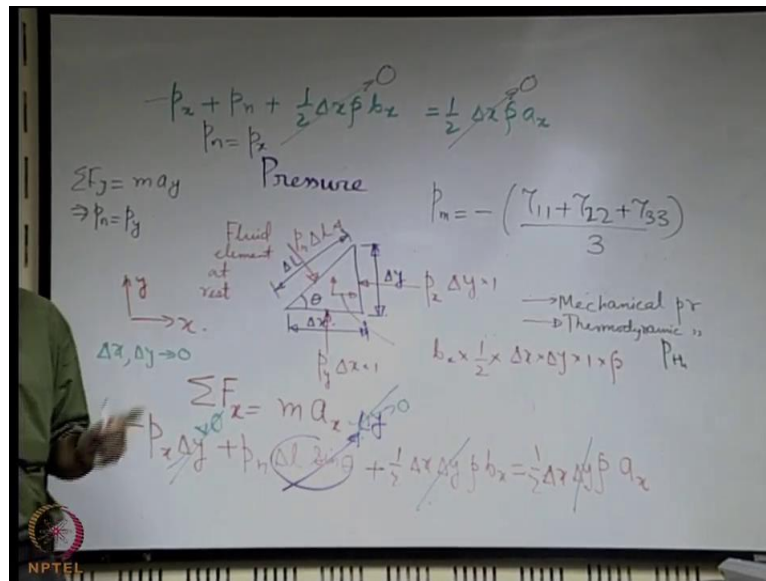 -px + pn + 1/2 Δx ρ bx = 1/2 Δx ρ ax
0
0
pn = px
ΣFy = may
⇒ pn = py
Pressure
pm = - (τ11 + τ22 + τ33)
3
Fluid
element
at
rest
pn Δl·1
Δl
θ
Δy
Δx
px Δy·1
py Δx·1
y
x
Δx, Δy → 0
→ Mechanical pr
→ Thermodynamic "
pth
bx × 1/2 × Δx × Δy × 1 × ρ
ΣFx = max
Δy
0
-px Δy + pn Δl sinθ + 1/2 Δx Δy ρ bx = 1/2 Δx Δy ρ ax
NPTEL